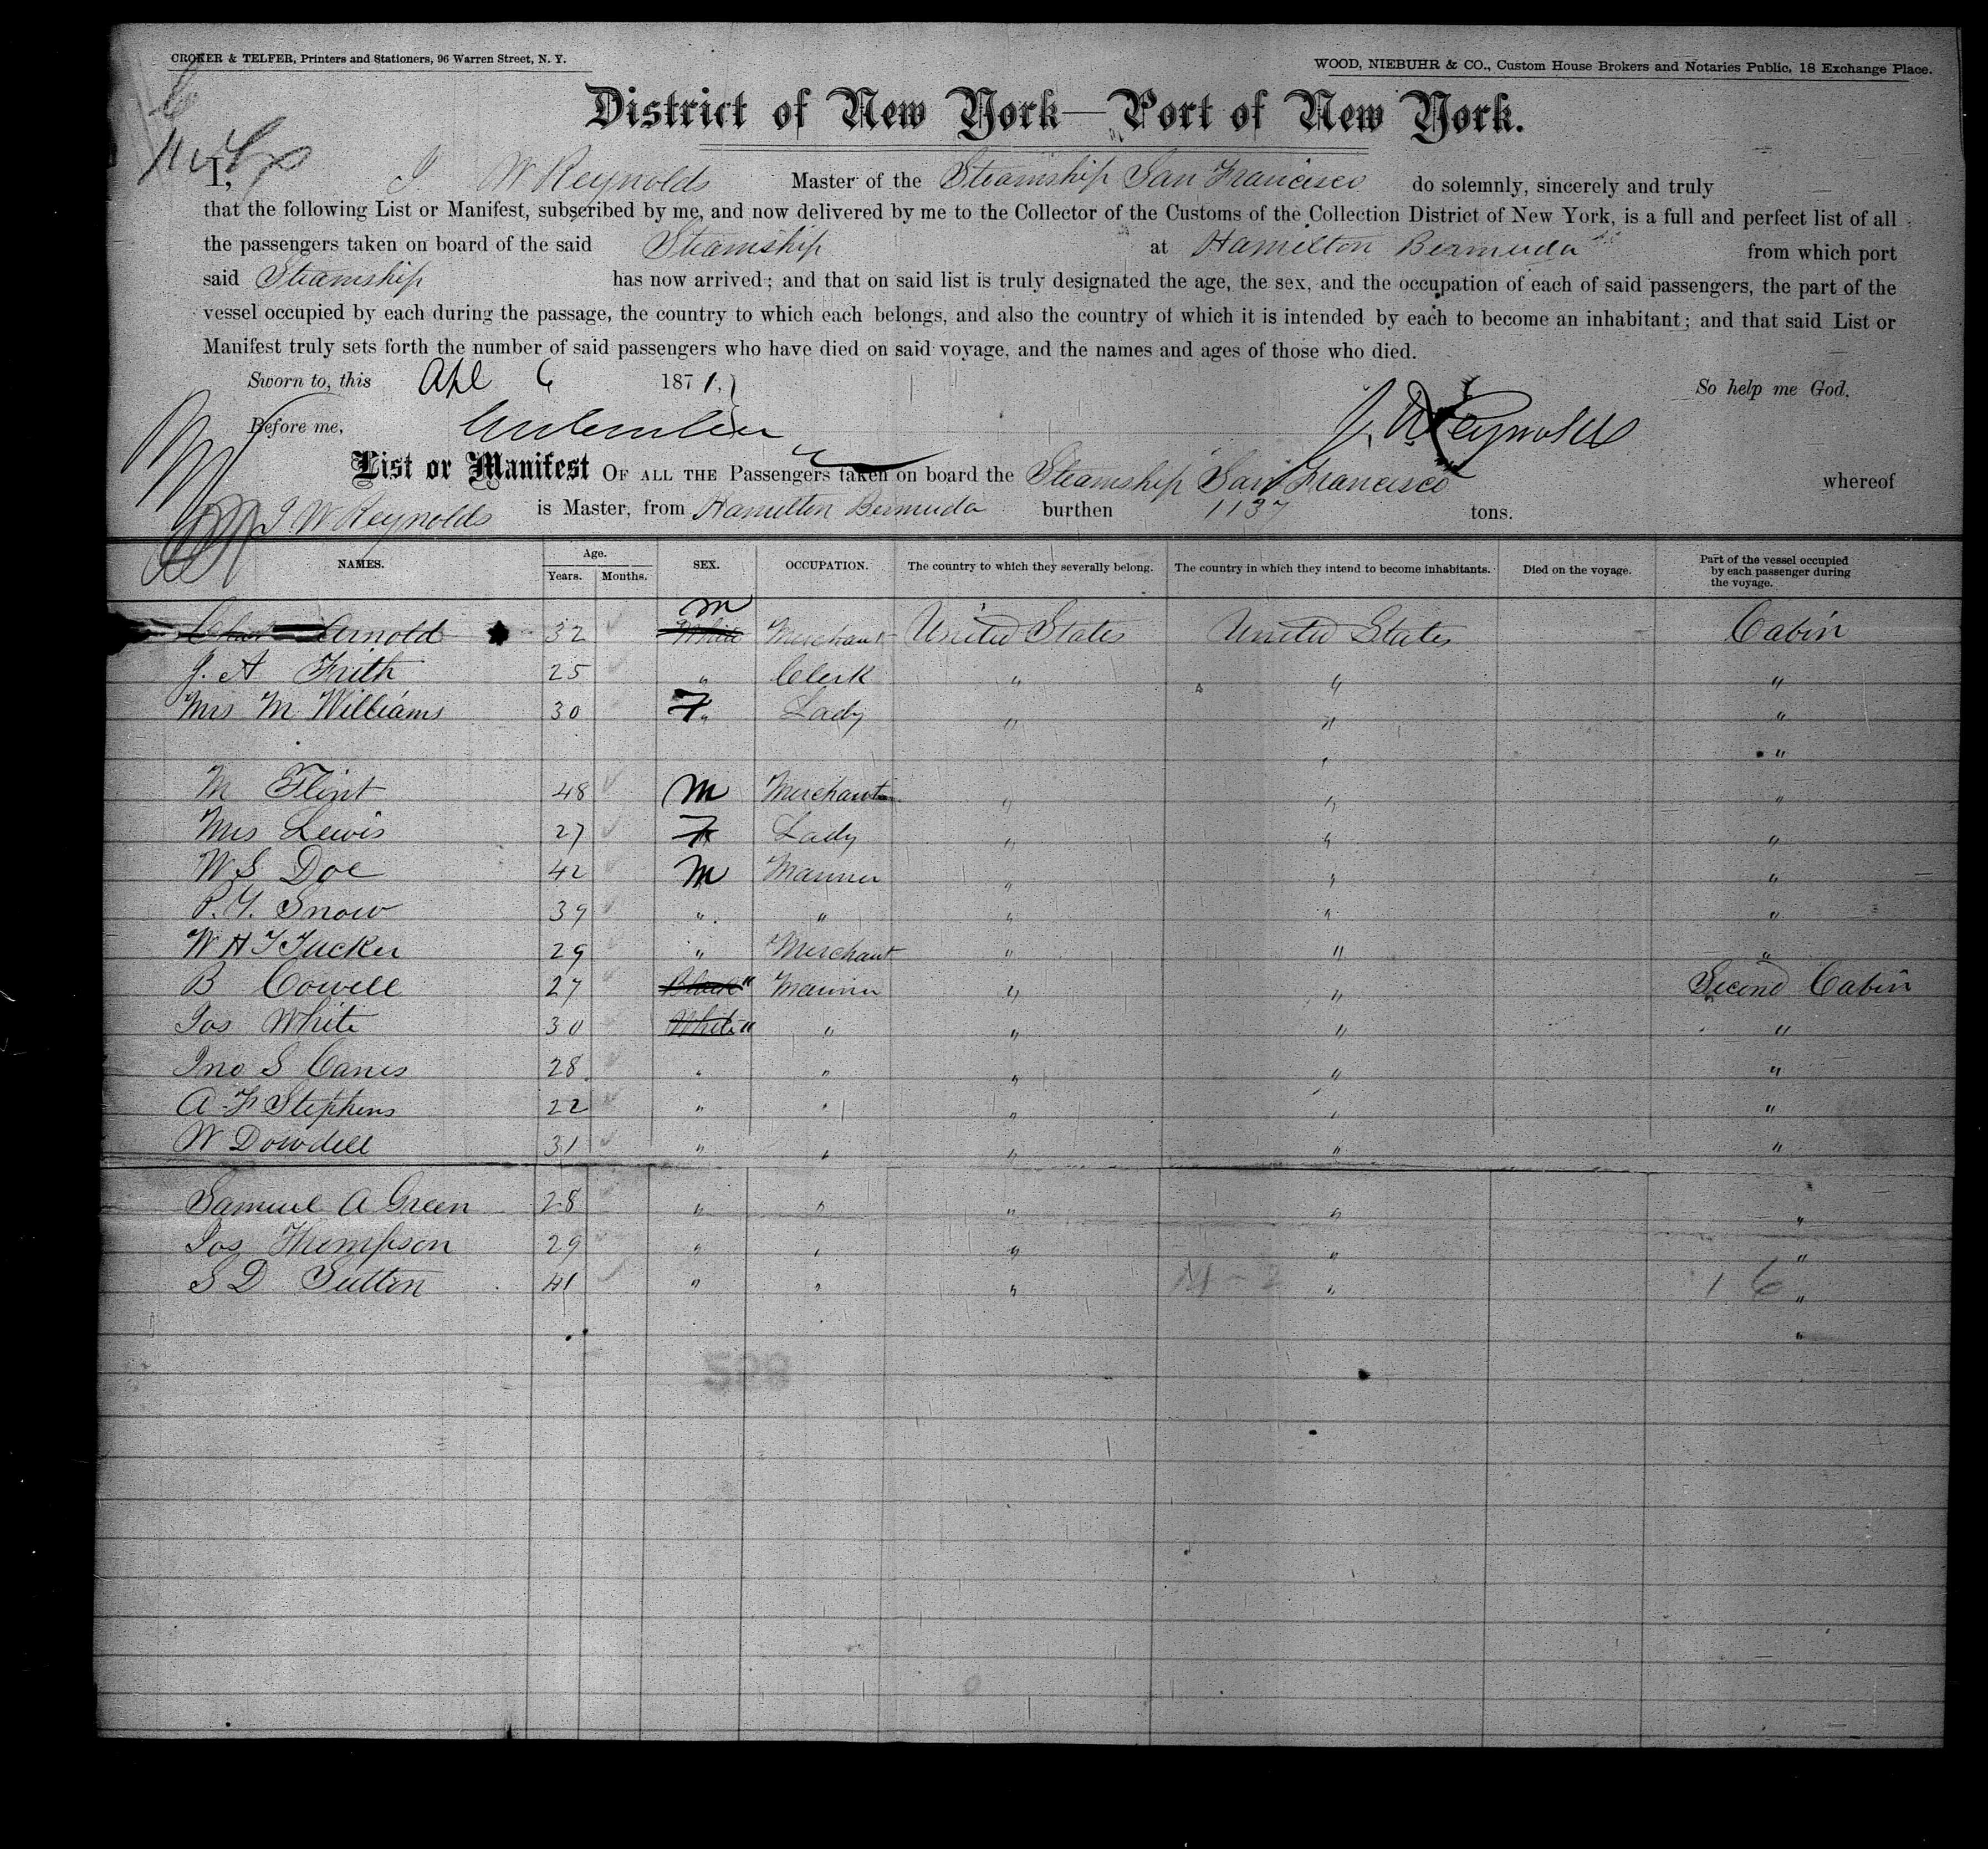 CROKER & TELFER, Printers and Stationers, 96 Warren Street, N. Y.
WOOD, NIEBUHR & CO., Custom House Brokers and Notaries Public, 18 Exchange Place.
District of New York—Port of New York.
I, J W Reynolds Master of the Steamship San Francisco do solemnly, sincerely and truly
that the following List or Manifest, subscribed by me, and now delivered by me to the Collector of the Customs of the Collection District of New York, is a full and perfect list of all
the passengers taken on board of the said Steamship at Hamilton Bermuda from which port
said Steamship has now arrived; and that on said list is truly designated the age, the sex, and the occupation of each of said passengers, the part of the
vessel occupied by each during the passage, the country to which each belongs, and also the country of which it is intended by each to become an inhabitant; and that said List or
Manifest truly sets forth the number of said passengers who have died on said voyage, and the names and ages of those who died.
Sworn to, this Apl 6 1871. So help me God,
Before me, J. W Reynolds
List or Manifest OF ALL THE Passengers taken on board the Steamship San Francisco whereof
J. W Reynolds is Master, from Hamilton Bermuda burthen 1137 tons.
NAMES. Age. Years. Months. SEX. OCCUPATION. The country to which they severally belong. The country in which they intend to become inhabitants. Died on the voyage. Part of the vessel occupied by each passenger during the voyage.
Arnold 32 White M Merchant United States United States Cabin
J. A Frith 25 " Clerk " " "
Mrs M Williams 30 F " Lady " " "
" "
M Flint 48 M Merchant " " "
Mrs Lewis 27 F Lady " " "
W S Doe 42 M Mariner " " "
P. Y. Snow 39 " " " " "
W H T Tucker 29 " Merchant " " "
B Cowell 27 Black " Mariner " " Second Cabin
Jos White 30 White " " " " "
Jno S Canes 28 " " " " "
A F Stephens 22 " " " " "
W Dowdell 31 " " " " "
Samuel A Green 28 " " " " "
Jos Thompson 29 " " " " "
S D Sutton 41 " " " " "
16
"